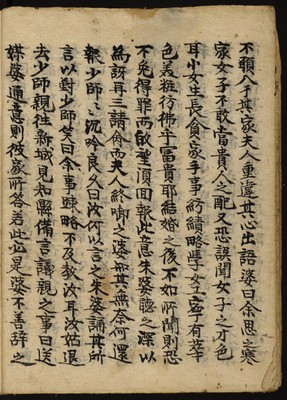 不願入于其家夫人重違其心出語婆曰余思之寒
家女子不敢當貴人之配又恐誤聞女子之才色
耳小女生長貧家手事紡績略學女工寧有華
色美粧彷彿乎富貴耶結婚之後不如所聞則恐
不免得罪而敢望頂回報此意朱婆聽之深以
為訝再三請 而夫人終 之婆無其無奈何還
報少師少師沉吟良久曰汝何以言之朱婆誦其所
言以對少師笑曰余事疎略不及教汝耳汝姑退
去少師親往新城見知縣備言議親之事曰送
媒婆通意則彼家所答若此必是婆不善辞之